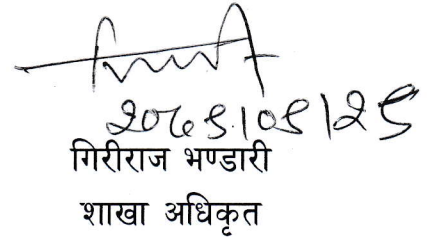 २०७९।०९।२९
गिरीराज भण्डारी
शाखा अधिकृत